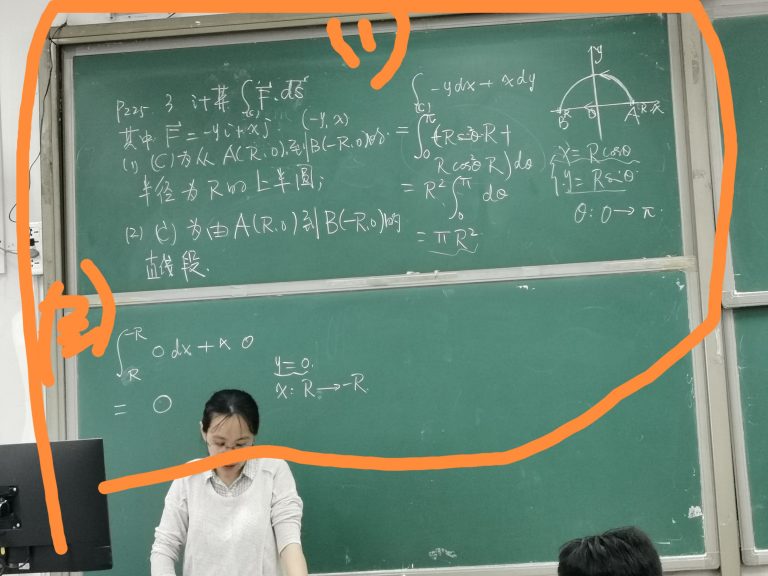 (1)
P225. 3 计算 ∫(C) F⃗·dS⃗
其中 F⃗ = -yi + xj. (-y, x)
(1) (C)为从A(R,0)到B(-R,0)的
半径为R的上半圆;
(2) (C)为由A(R,0)到B(-R,0)的
直线段.
∫(C) -ydx + xdy
= ∫₀^π (Rsin²θ·R +
Rcos²θ R) dθ
= R² ∫₀^π dθ
= πR²
y
B O A x
x = Rcosθ
y = Rsinθ
θ: 0→π.
(2)
∫_R^-R 0 dx + x 0
= 0
y=0.
x: R→-R.